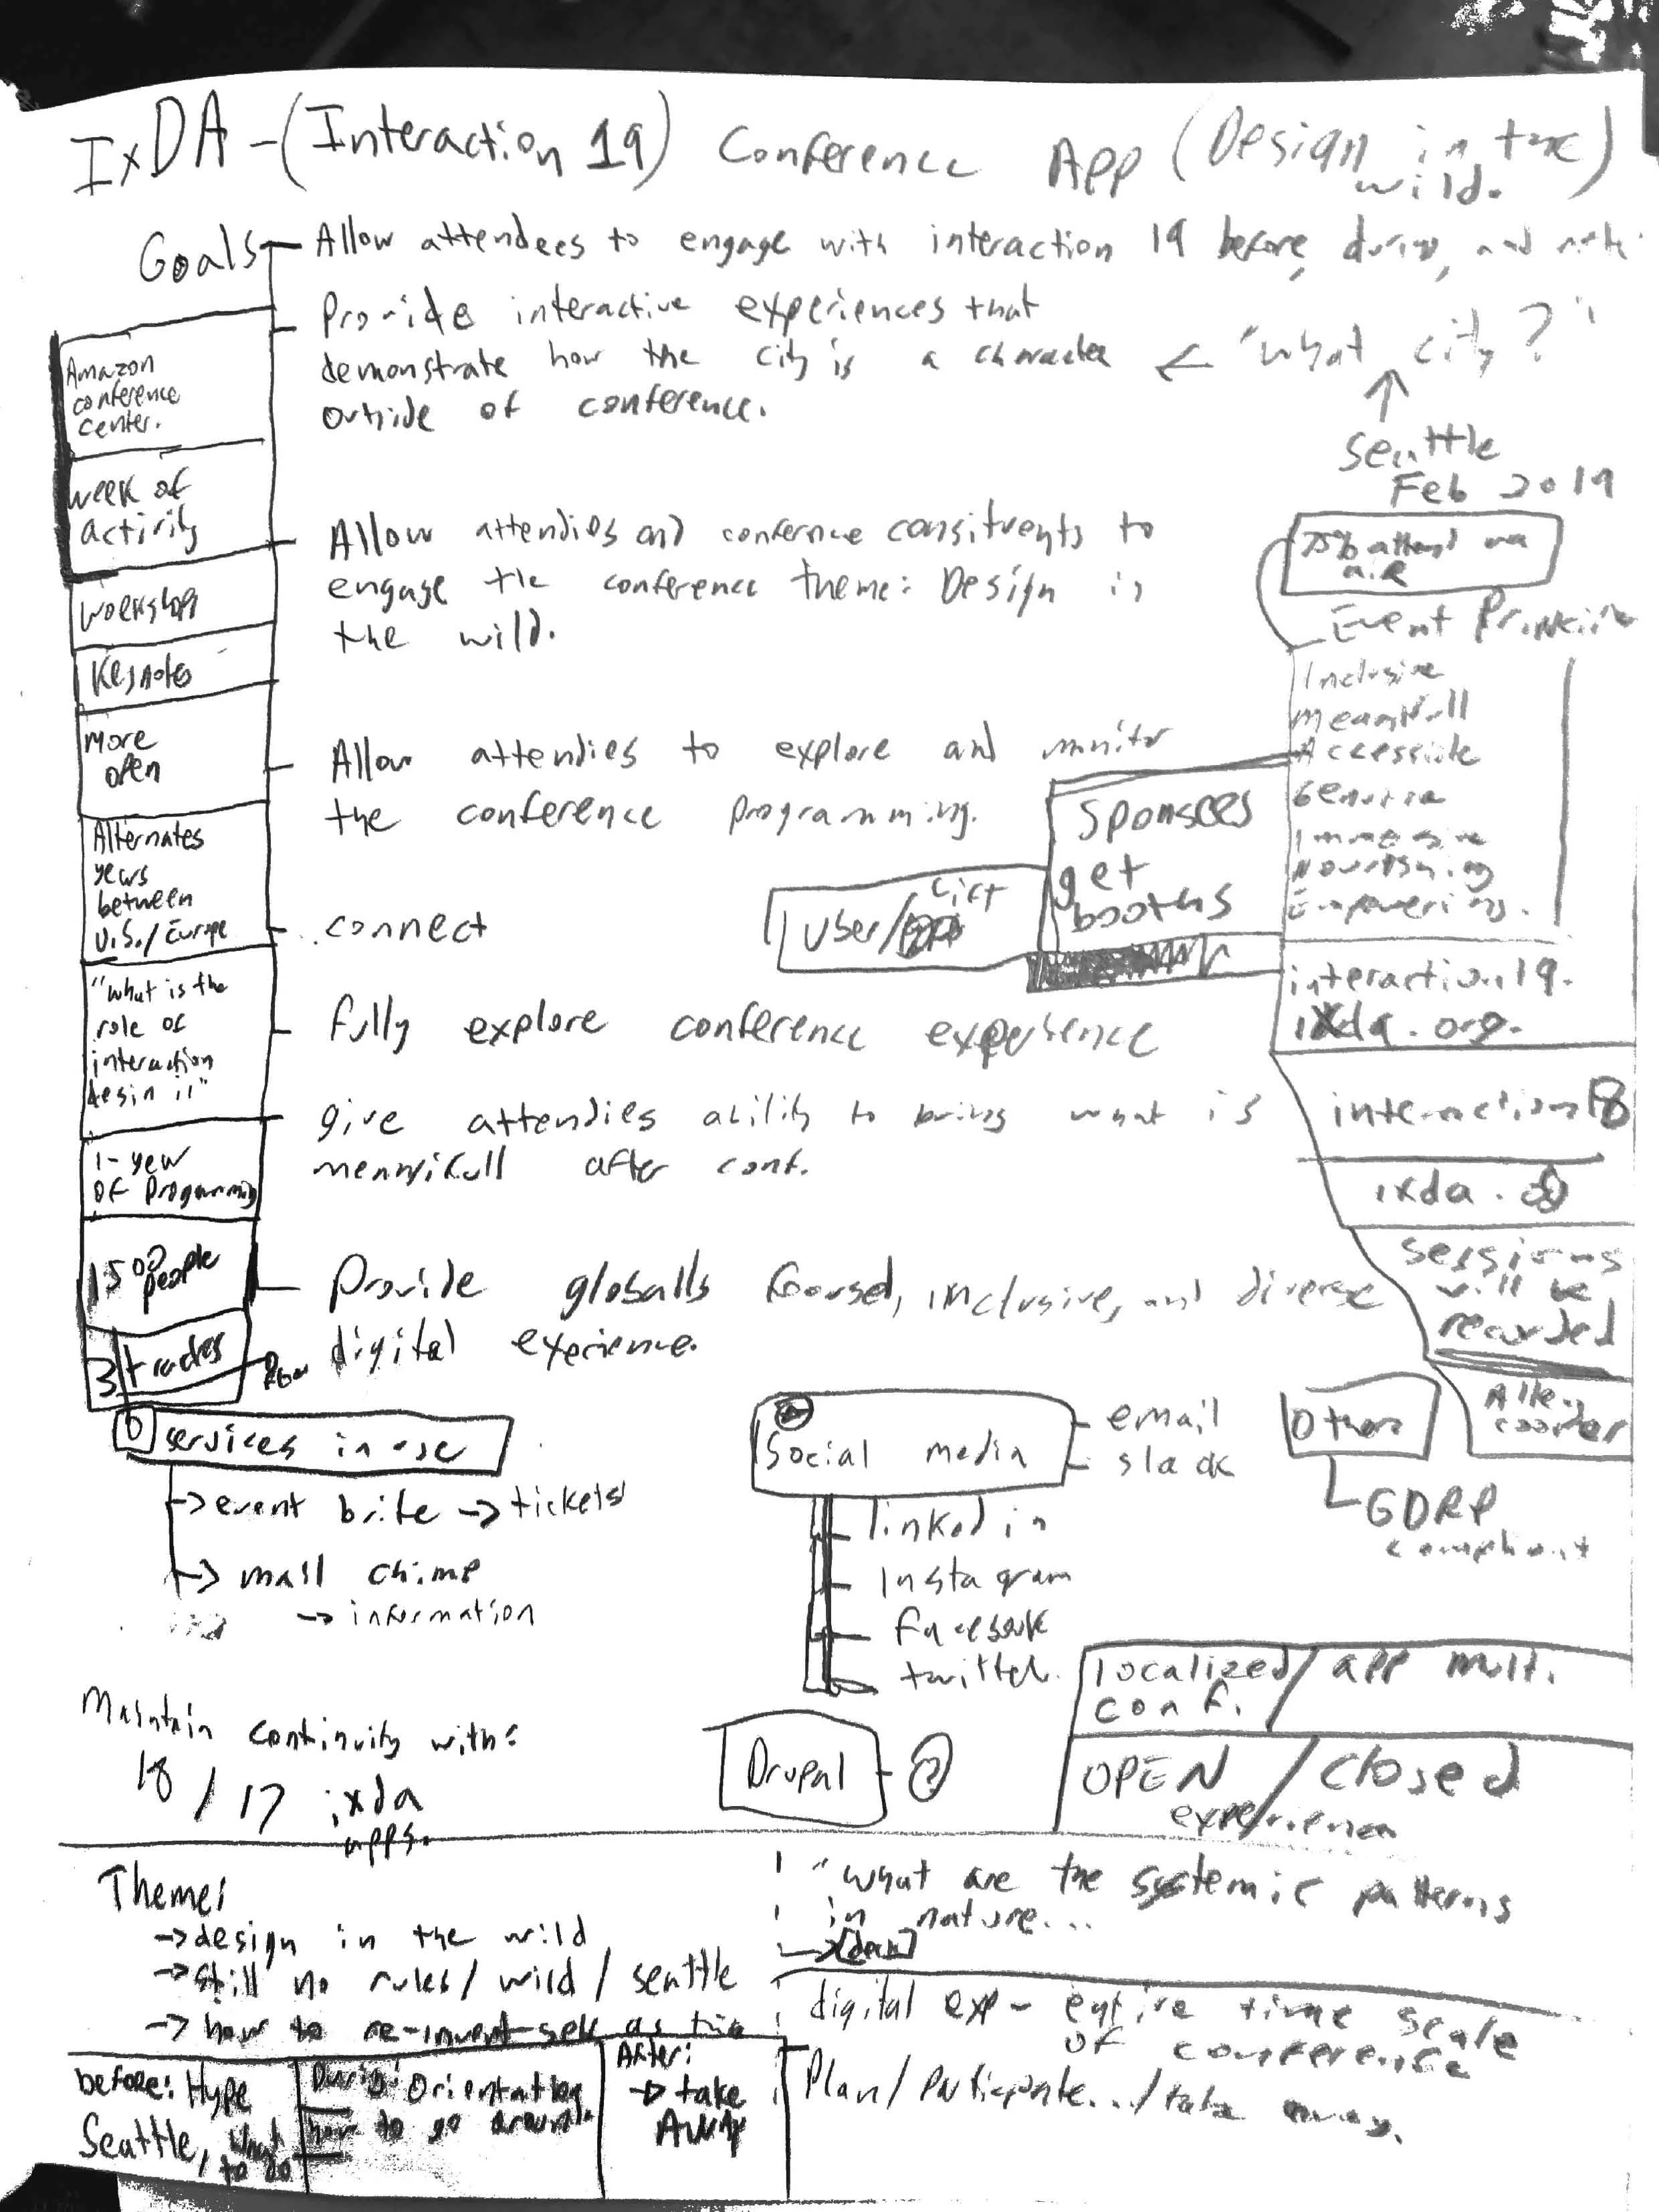 IxDA - (Interaction 19) Conference App (Design in the wild.)
Goals
Allow attendees to engage with interaction 19 before, during, and
Provide interactive experiences that
demonstrate how the city is a character ← "what city?"
outside of conference.
Seattle
Feb 2019
75% attend via
air
Allow attendies and conference consituents to
engage the conference theme: Design in
the wild.
Allow attendies to explore and monitor
the conference programming.
connect
fully explore conference experience
give attendies ability to bring what is
after conf.
Provide globally focused, inclusive, and diverse
digital experience.
Amazon
conference
center.
week of
activity
workshop
Keynotes
More
open
Alternates
years
between
U.S./Europe
"what is the
role of
interaction
desin
1-year
of Programming
1500
people
3
Event
Inclusive
Accessible
Immersive
Nourishing
Empowering.
Sponsors
get
booths
User/
interaction19.
ixda.org.
interaction18
ixda.
sessions
will be
recorded
services in use
→ event brite → tickets
→ mail chimp
→ information
Social media
email
slack
linked in
Instagram
facebook
twitter.
Others
GDRP
compliant
Maintain continuity with:
18 / 17 ixda
apps.
Drupal
localized / app mult.
conf.
OPEN / closed
experience
Theme:
→ design in the wild
→ still no rules / wild / seattle
→ how to re-invent self as
"what are the systemic patterns
in nature...
digital exp - entire time scale
of conference
Plan / Participate... / take away.
before: Hype
Seattle, what
to do
During: Orientation
how to go around.
After:
→ take
Away